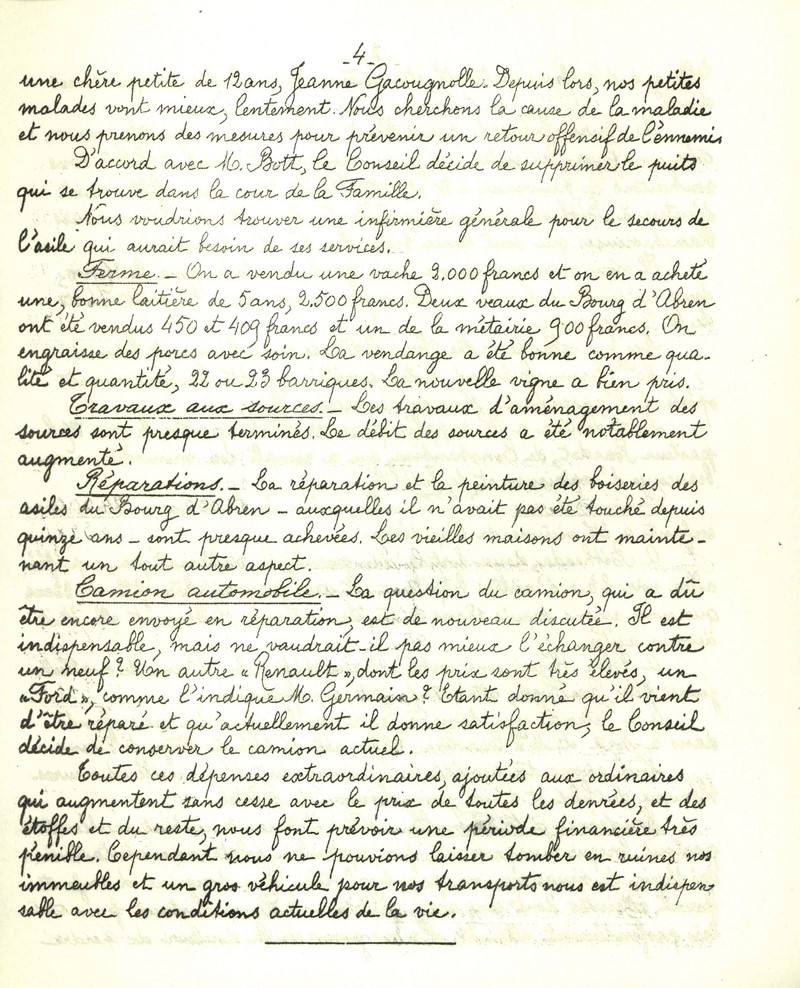 -4-
une chère petite de 12 ans, Jeanne Gacougnolle. Depuis lors, nos petites
malades vont mieux, lentement. Nous cherchons la cause de la maladie
et nous prenons des mesures pour prévenir un retour offensif de l'ennemi.
D'accord avec M. Bott, le Conseil décide de supprimer le puits
qui se trouve dans la cour de la Famille.
Nous voudrions trouver une infirmière générale pour le secours de
l'asile qui aurait besoin de ses services.
Ferme. – On a vendu une vache 2.000 francs et on en a acheté
une, bonne laitière de 5 ans, 2.500 francs. Deux veaux du Bourg d'Abren
ont été vendus 450 et 409 francs et un de la métairie 900 francs. On
engraisse des porcs avec soin. La vendange a été bonne comme qua-
lité et quantité, 22 ou 23 barriques. La nouvelle vigne a bien pris.
Travaux aux sources. – Les travaux d'aménagement des
sources sont presque terminés. Le débit des sources a été notablement
augmenté.
Réparations. – La réparation et la peinture des boiseries des
asiles du Bourg d'Abren – auxquelles il n'avait pas été touché depuis
quinze ans – sont presque achevées. Les vieilles maisons ont mainte-
nant un tout autre aspect.
Camion automobile. – La question du camion, qui a dû
être encore envoyé en réparation, est de nouveau discutée. Il est
indispensable, mais ne vaudrait-il pas mieux l'échanger contre
un neuf? Un autre « Renault », dont les prix sont très élevés, un
« Ford », comme l'indique M. Germain? Etant donné qu'il vient
d'être réparé et qu'actuellement il donne satisfaction, le Conseil
décide de conserver le camion actuel.
Toutes ces dépenses extraordinaires, ajoutées aux ordinaires
qui augmentent sans cesse avec le prix de toutes les denrées, et des
étoffes et du reste, nous font prévoir une période financière très
pénible. Cependant nous ne pouvions laisser tomber en ruines nos
immeubles et un gros véhicule pour nos transports nous est indispen-
sable avec les conditions actuelles de la vie.